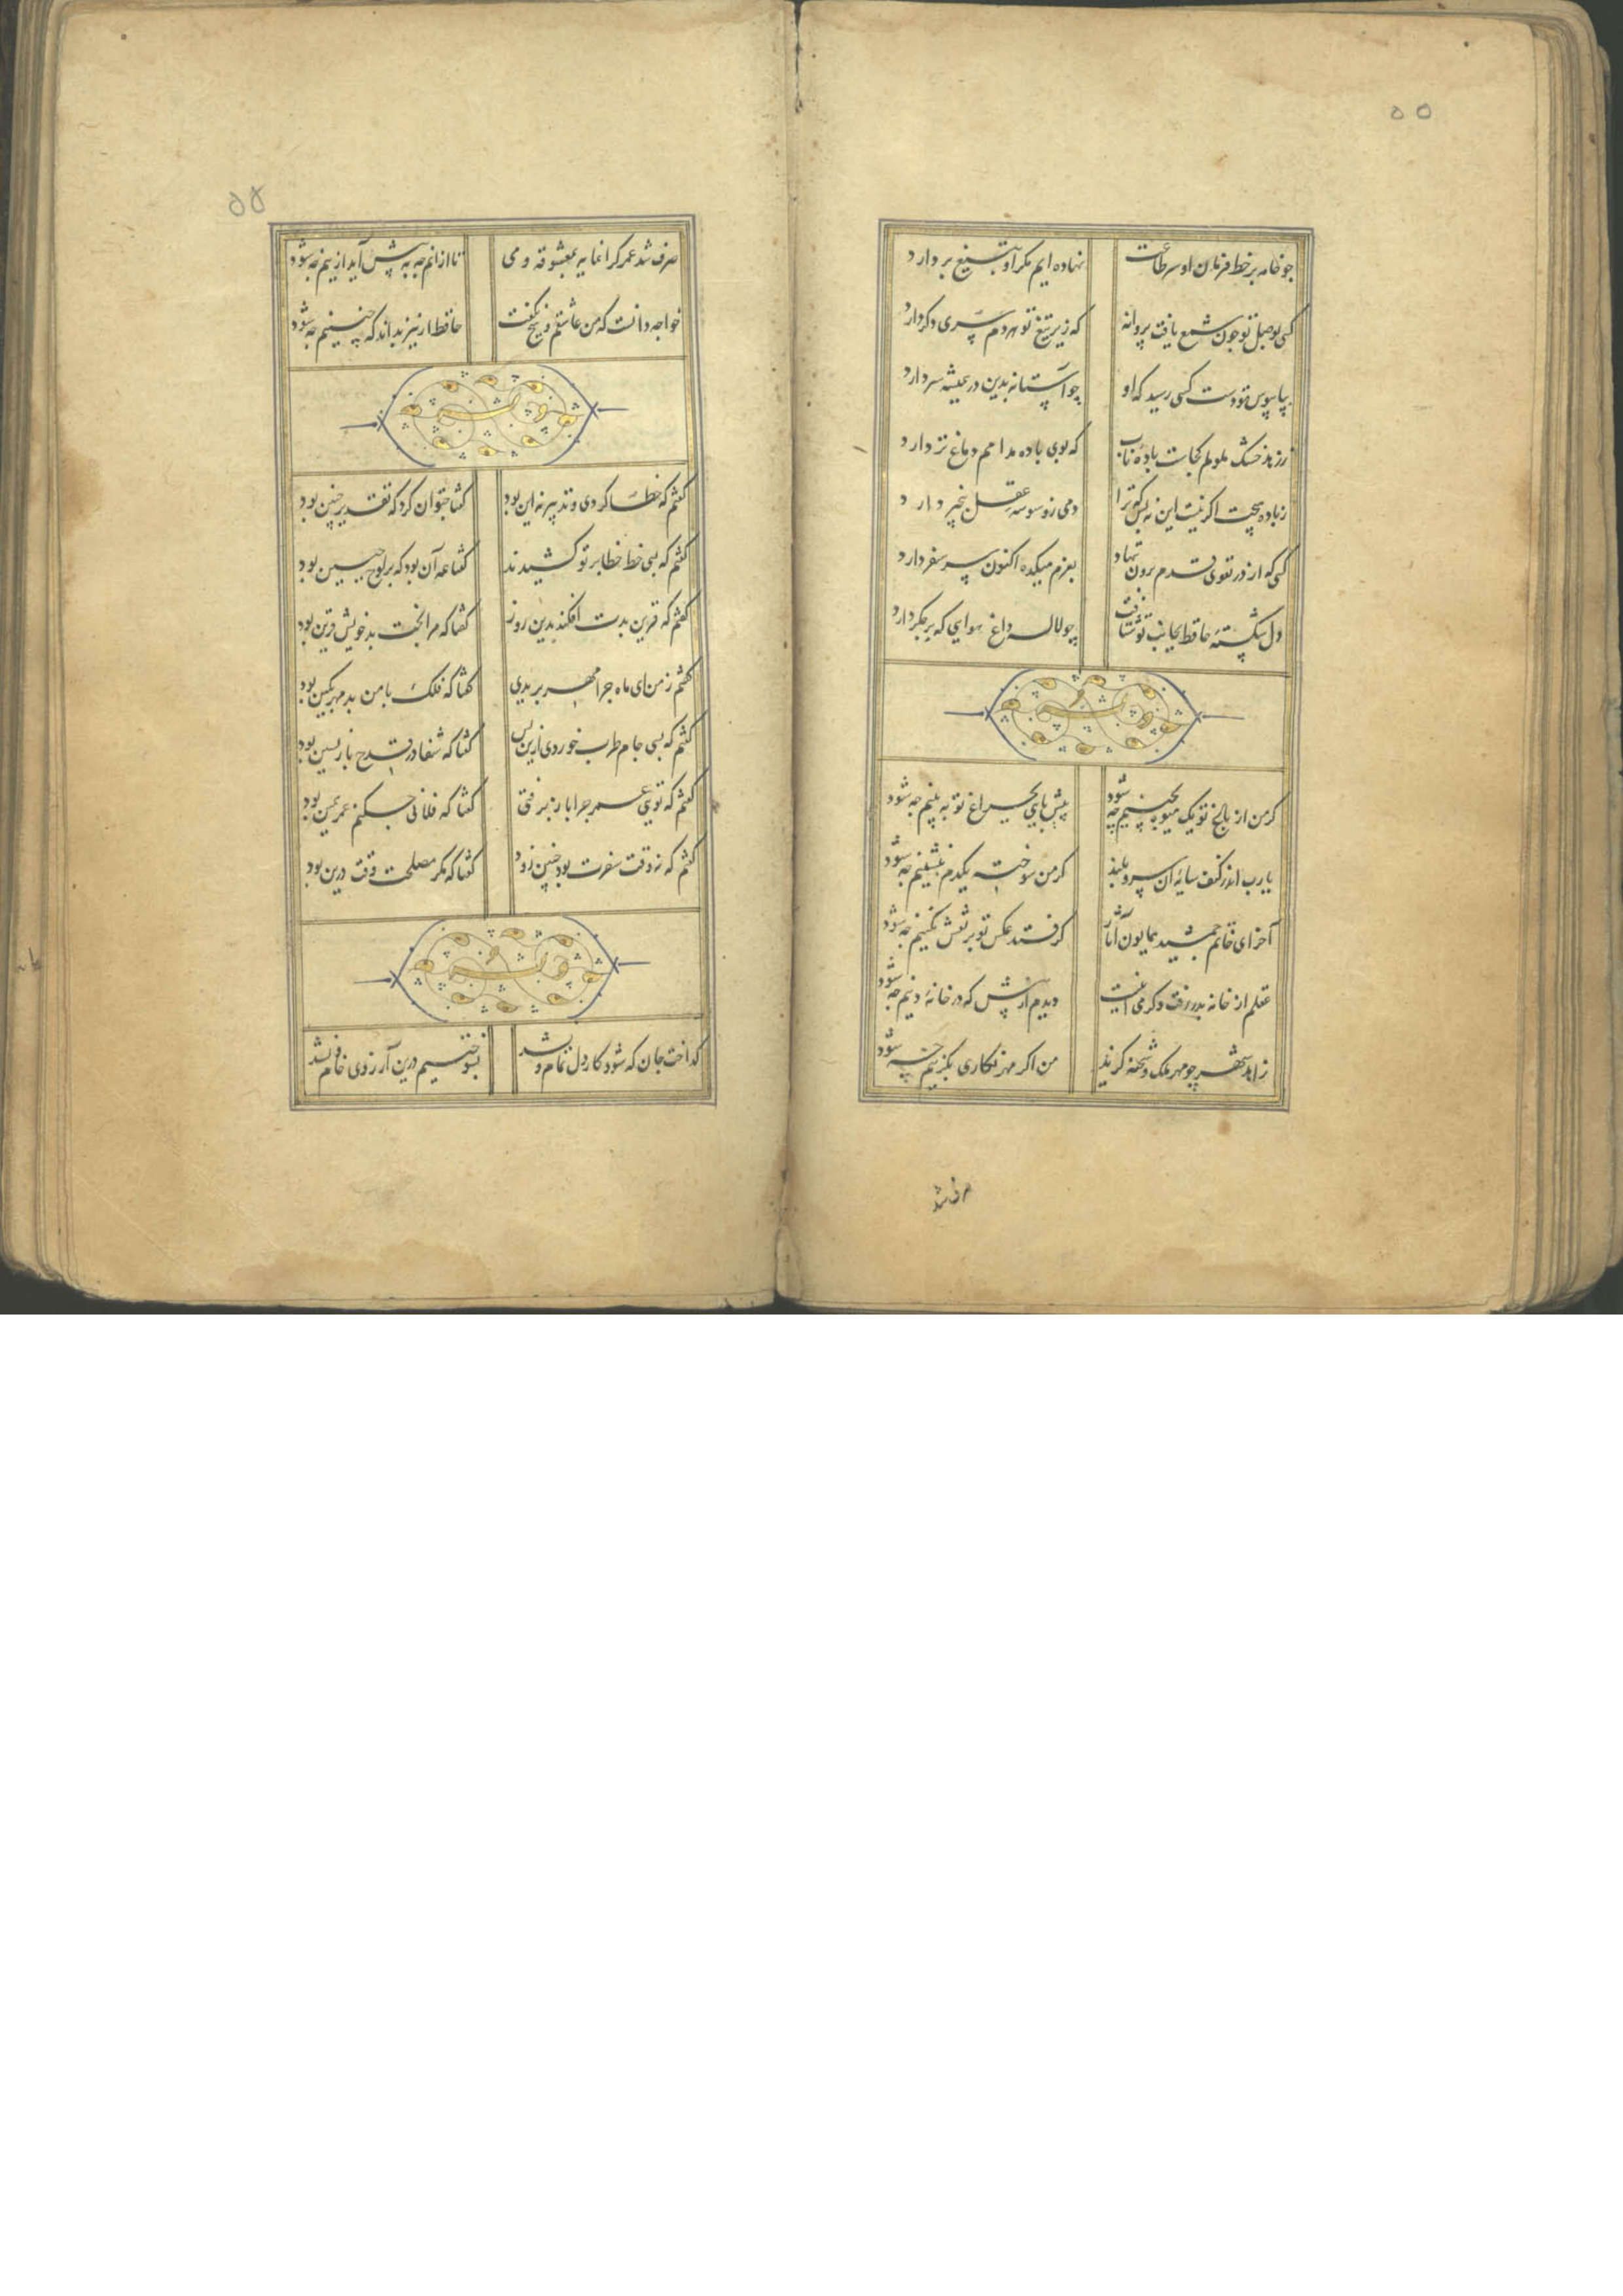 ۵۵
چو خامه بر خط فرمان او سر طاعت نهاده ایم مکر او بتیغ بر دارد
کسی بوصل تو چون شمع یافت پروانه که زیر تیغ تو هر دم سری دکر دارد
بپایبوس تو دست کسی رسید که او چو آستانه بدین در همیشه سر دارد
ز زهد خشک ملولم کجاست باده ناب که بوی باده مدامم دماغ تر دارد
ز باده هیچت اکر نیست این نه بس که ترا دمی ز وسوسه عقل بیخبر دارد
کسی که از در تقوی قدم برون ننهاد بعزم میکده اکنون سر سفر دارد
دل شکسته حافظ بجانب تو شتافت چو لاله داغ هوایی که بر جکر دارد
وله
کر من از باغ تو یک میوه بچینم چه شود پیش پایی بچراغ تو به بینم چه شود
یا رب اندر کنف سایه آن سرو بلند کر من سوخته یکدم بنشینم چه شود
آخر ای خاتم جمشید همایون آثار کر فتد عکس تو بر نقش نکینم چه شود
عقلم از خانه بدر رفت و کر می اینست دیدم از پیش که در خانه دینم چه شود
زاهد شهر چو مهر ملک و شحنه کزید من اکر مهر نکاری بکزینم چه شود
صرف شد
۵۵
صرف شد عمر کرانمایه بمعشوقه و می تا از انم چه به پیش آید ازینم چه شود
خواجه دانست که من عاشقم و هیچ نکفت حافظ ار نیز بداند که چنینم چه شود
وله
کفتم که خطا کردی و تدبیر نه این بود کفتا چتوان کرد که تقدیر چنین بود
کفتم که بسی خط خطا بر تو کشیدند کفتا همه آن بود که بر لوح جبین بود
کفتم که قرین بدت افکند بدین روز کفتا که مرا بخت بد خویش قرین بود
کفتم ز من ای ماه چرا مهر بریدی کفتا که فلک با من بد مهر بکین بود
کفتم که بسی جام طرب خوردی ازین پس کفتا که شفا در قدح باز پسین بود
کفتم که تویی عمر چرا باز برفتی کفتا که فلانی چکنم عمر همین بود
کفتم که نه وقت سفرت بود چنین زود کفتا که مکر مصلحت وقت درین بود
وله
کداخت جان که شود کار دل تمام و نشد بسوختیم درین آرزوی خام و نشد